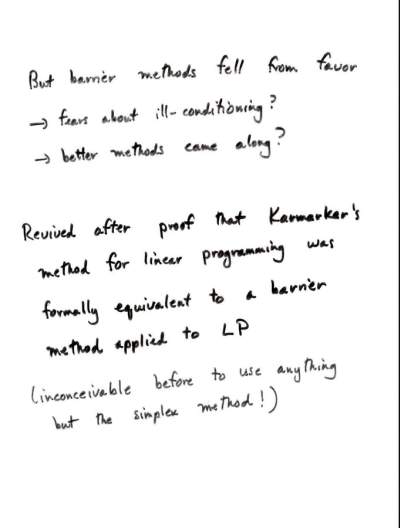 But barrier methods fell from favor
→ fears about ill-conditioning?
→ better methods came along?
Revived after proof that Karmarkar's
method for linear programming was
formally equivalent to a barrier
method applied to LP
(inconceivable before to use anything
but the simplex method!)